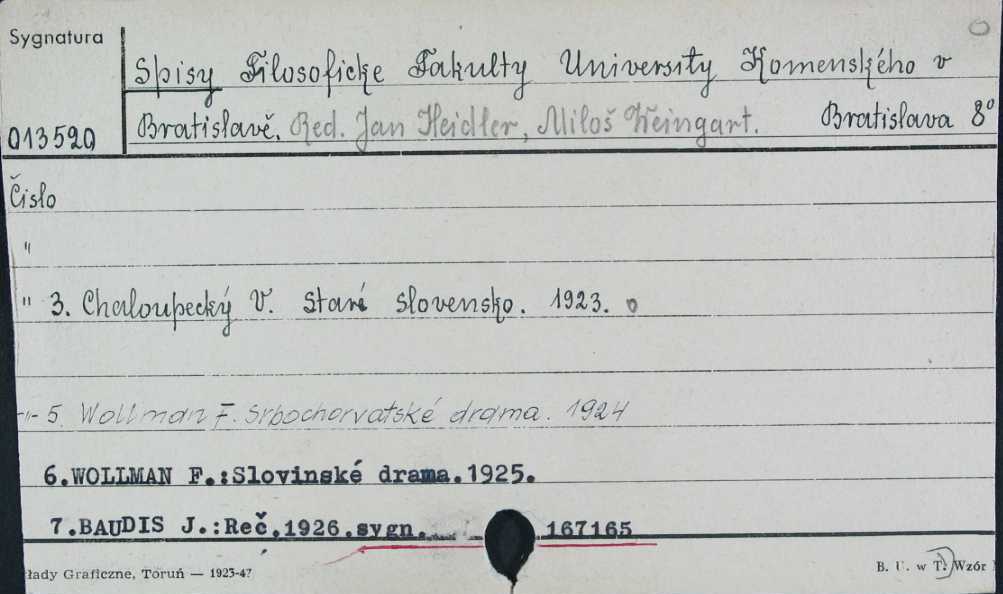 Sygnatura
Spisy Filosoficke Fakulty University Komenského v
013520 Bratislavě. Red. Jan Heidler, Miloš Weingart. Bratislava 8°
Čislo
"
" 3. Chaloupecký V. Staré Slovensko. 1923.
-"- 5. Wollman F. Srbochorvatské drama. 1924
6.WOLLMAN F.:Slovinské drama.1925.
7.BAUDIS J.:Reč.1926.sygn. 167165
łady Graficzne, Toruń — 1925-47
B. U. w T. Wzór